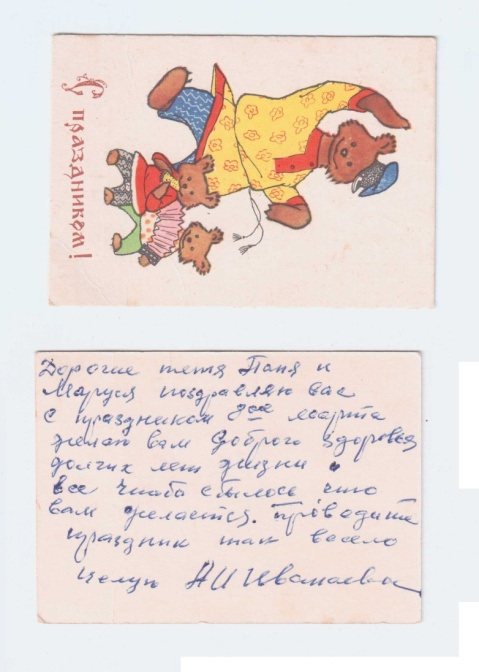 С праздником!
Дорогие тетя Паня и
Маруся поздравляю вас
с праздником 8ое марта
желаю вам доброго здоровья
долгих лет жизни
все чтоб сбылось что
вам желается. Проводите
праздник так весело
целую А И